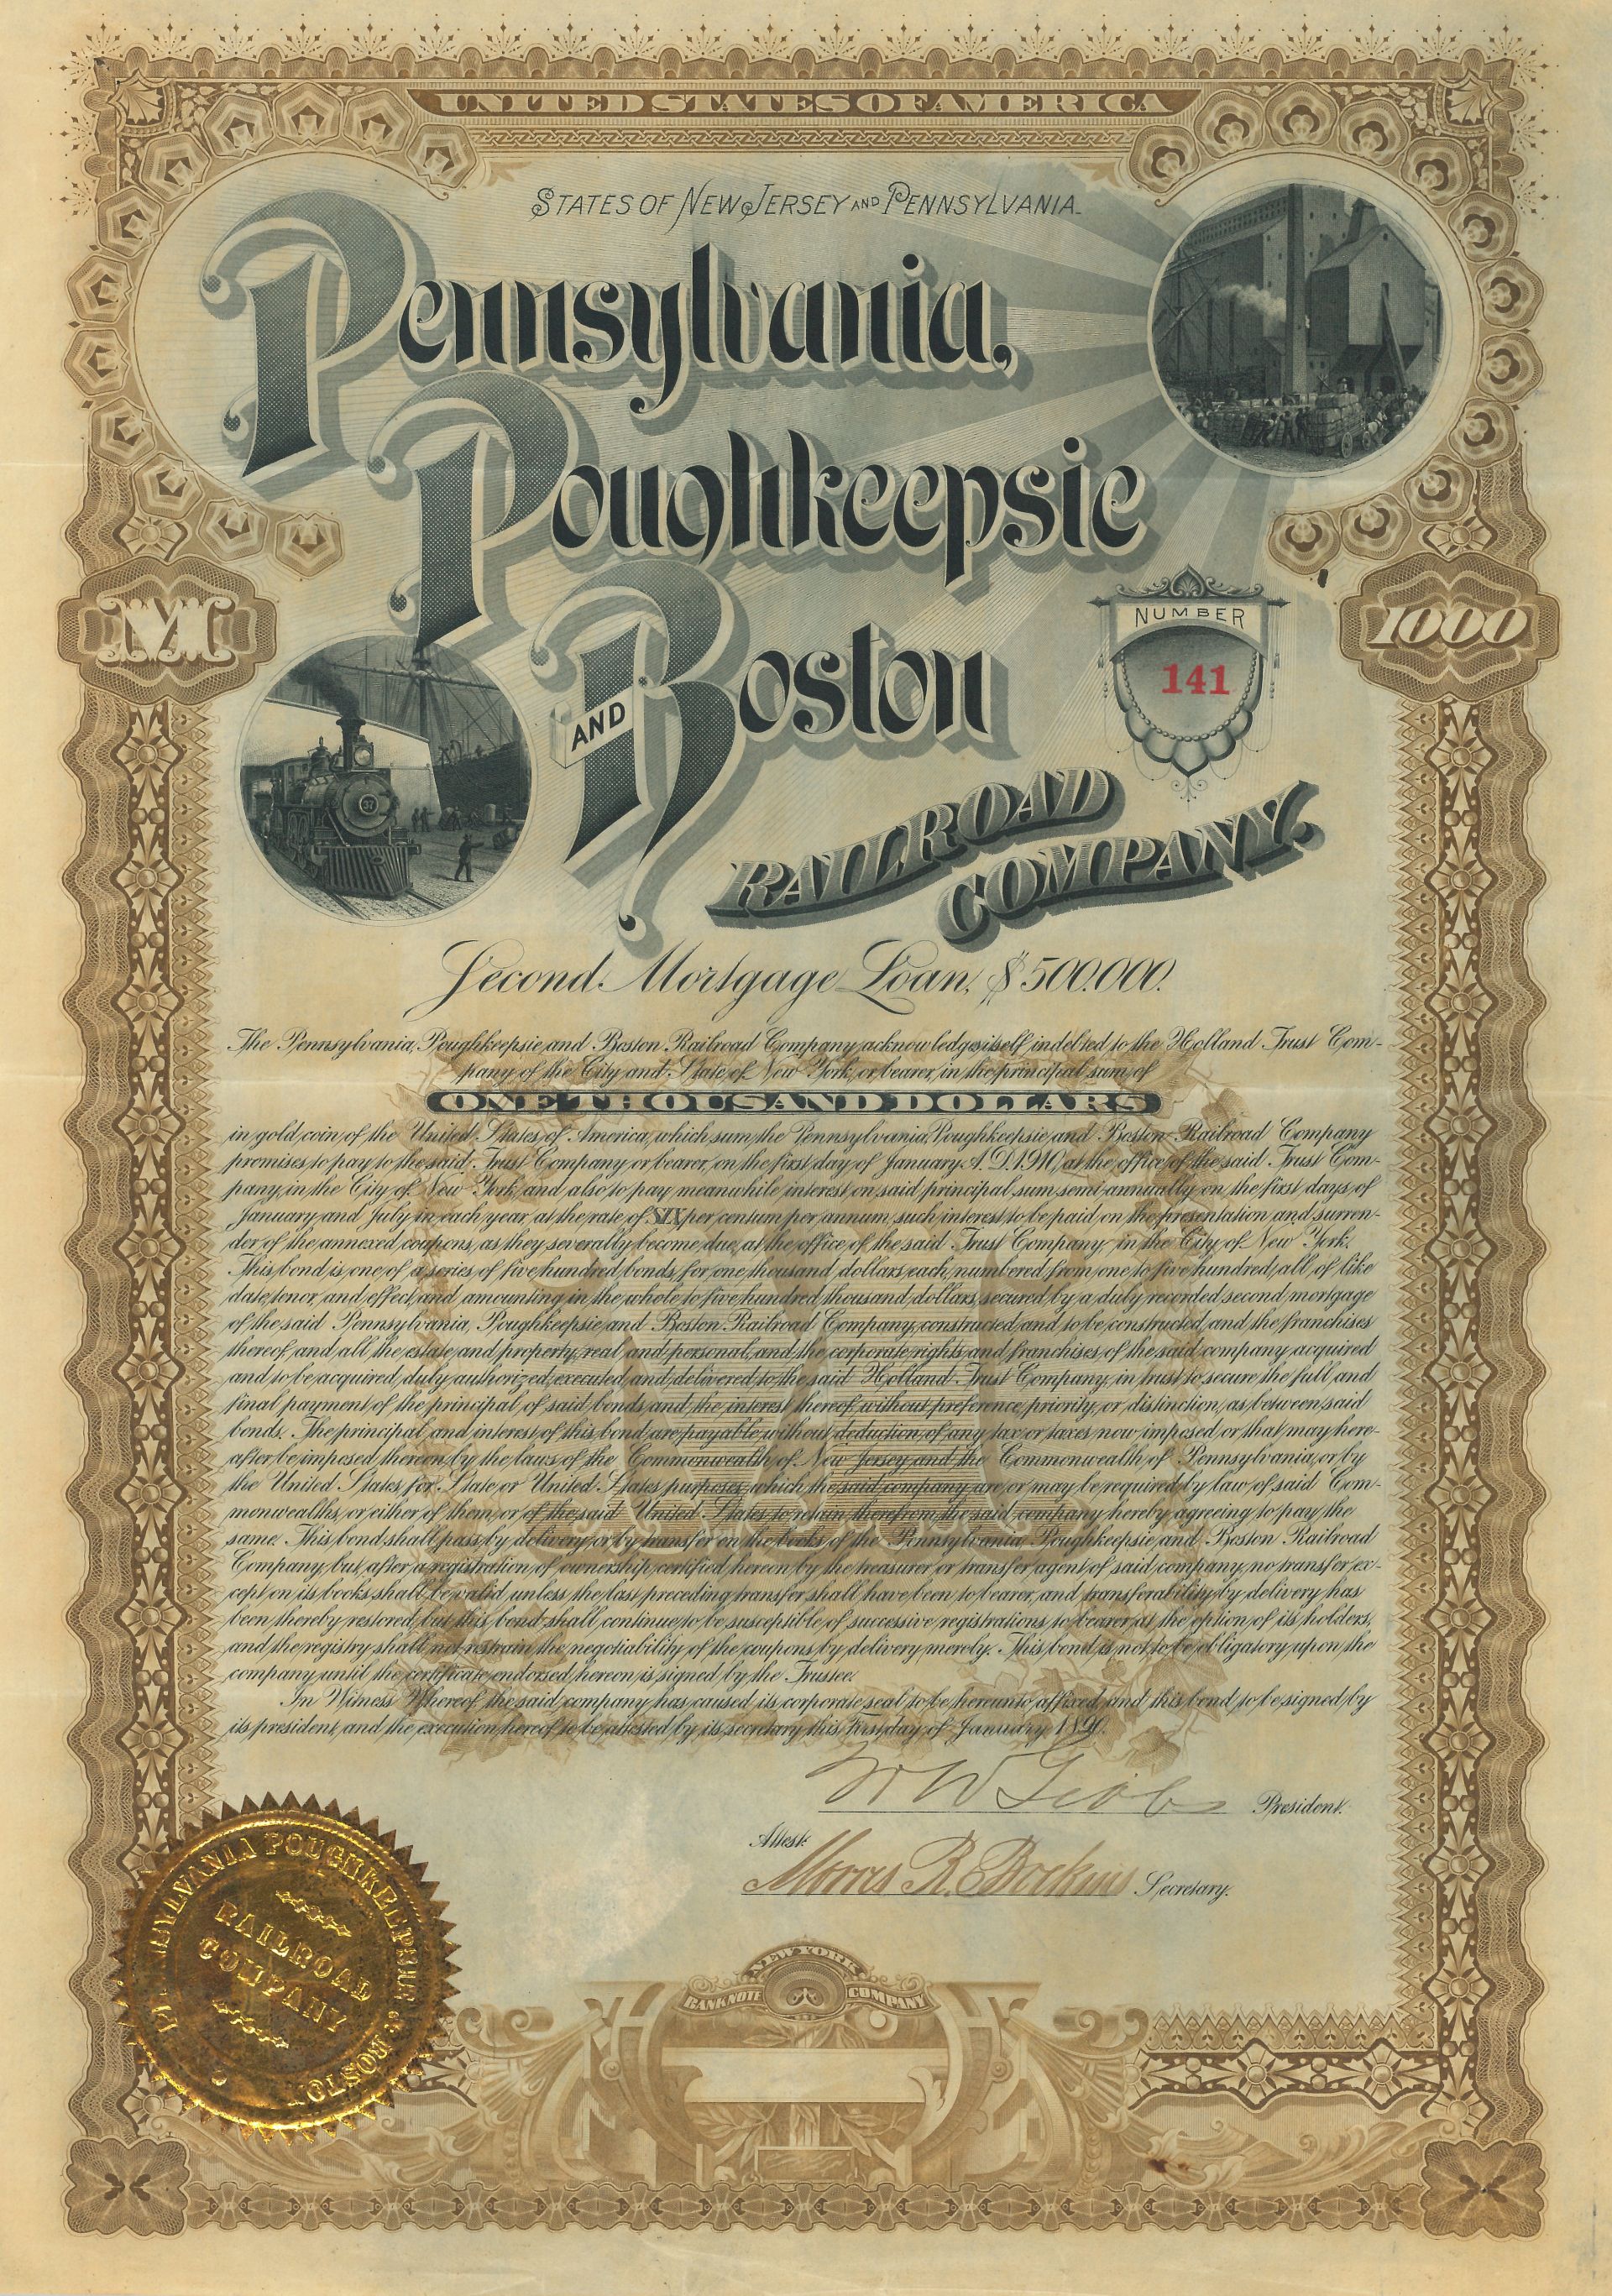 UNITED STATES OF AMERICA
STATES OF NEW JERSEY AND PENNSYLVANIA.
Pennsylvania,
Poughkeepsie
AND Boston
RAILROAD
COMPANY.
NUMBER
141
M
1000
37
Second Mortgage Loan, $500.000.
The Pennsylvania, Poughkeepsie and Boston Railroad Company acknowledges itself indebted to the Holland Trust Com-
pany of the City and State of New York, or bearer, in the principal sum of
ONE THOUSAND DOLLARS
in gold coin of the United States of America, which sum the Pennsylvania, Poughkeepsie and Boston Railroad Company
promises to pay to the said Trust Company or bearer, on the first day of January A.D. 1910, at the office of the said Trust Com-
pany, in the City of New York, and also to pay meanwhile interest on said principal sum, semi-annually on the first days of
January and July in each year, at the rate of SIX per centum per annum, such interest to be paid on the presentation and surren-
der of the annexed coupons, as they severally become due, at the office of the said Trust Company, in the City of New York.
This bond is one of a series of five hundred bonds, for one thousand dollars each, numbered from one to five hundred, all of like
date, tenor, and effect, and amounting in the whole to five hundred thousand dollars, secured by a duly recorded second mortgage
of the said Pennsylvania, Poughkeepsie and Boston Railroad Company, constructed and to be constructed, and the franchises
thereof, and all the estate, and property, real, and personal, and the corporate rights and franchises, of the said company acquired
and to be acquired, duly authorized, executed, and delivered to the said Holland Trust Company, in trust to secure the full and
final payment of the principal of said bonds and the interest thereof, without preference, priority, or distinction, as between said
bonds. The principal and interest of this bond are payable without deduction, of any tax or taxes now imposed or that may here-
after be imposed thereon by the laws of the Commonwealth of New Jersey and the Commonwealth of Pennsylvania, or by
the United States, for State or United States purposes, which the said company are, or may be required by law of said Com-
monwealths, or either of them, or of the said United States to retain therefrom, the said company hereby agreeing to pay the
same. This bond shall pass by delivery, or by transfer on the books of the Pennsylvania, Poughkeepsie and Boston Railroad
Company, but after a registration of ownership, certified hereon by the treasurer or transfer agent of said company, no transfer ex-
cept on its books shall be valid unless the last preceding transfer shall have been to bearer, and transferability by delivery has
been thereby restored, but this bond shall continue to be susceptible, of successive registrations to bearer, at the option of its holders,
and the registry shall not restrain the negotiability of the coupons, by delivery merely. This bond is not to be obligatory upon the
company until the certificate, endorsed hereon, is signed by the Trustee.
In Witness Whereof, the said company has caused its corporate seal to be hereunto affixed, and this bond to be signed by
its president, and the execution hereof to be attested by its secretary this First day of January 1890.
President.
Attest
Morris R. Bockius Secretary.
PENNSYLVANIA POUGHKEEPSIE & BOSTON
RAILROAD
COMPANY
NEW YORK
BANKNOTE COMPANY